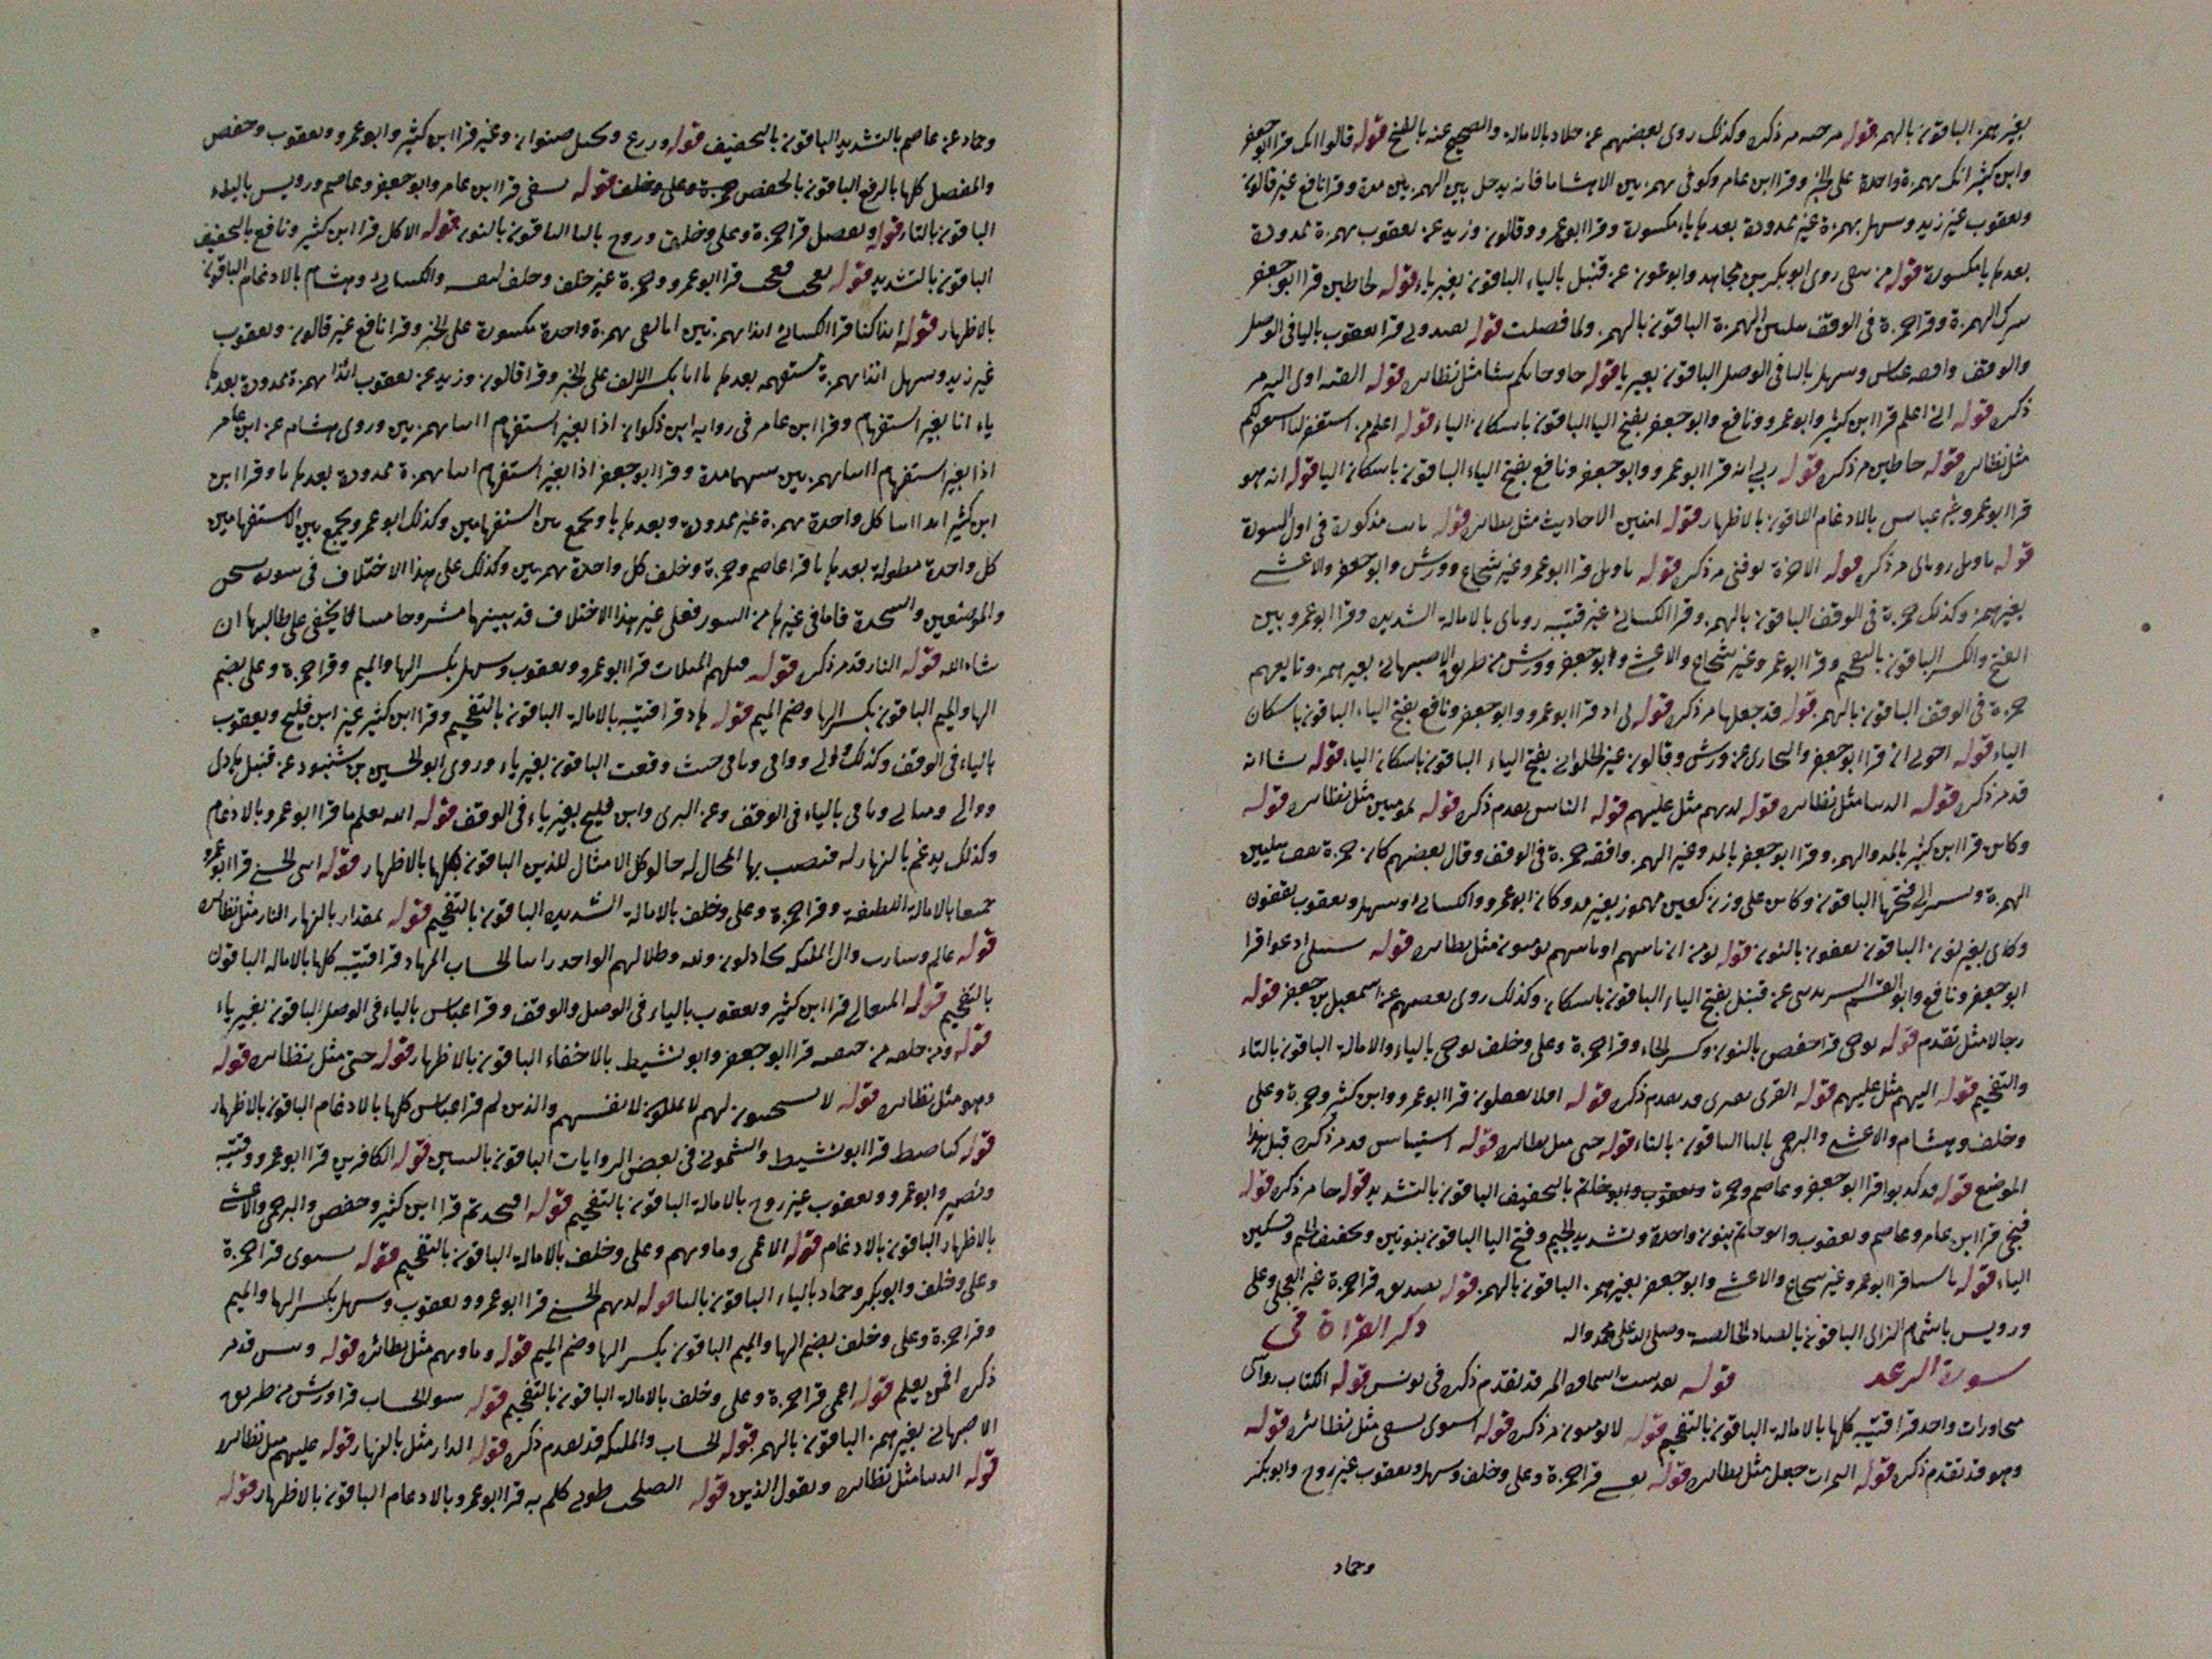 بغير همز الباقون بالهمز قوله مر ذكره وكذلك روى بعضهم عن خلاد بالامالة والصحيح عنه بالفتح قوله قالوا انك قرا ابو جعفر
وابن كثير انك بهمزة واحدة على الخبر وقرا ابن عامر وكوفى بهمزتين الا هشاما فانه يدخل بين الهمزتين مدة وقرا نافع غير قالون
ويعقوب غير زيد وسهل بهمزة غير ممدودة بعدها ياء مكسورة وقرا ابو عمرو وقالون وزيد عن يعقوب بهمزة ممدودة
بعدها يا مكسورة قوله من روى ابو بكر بن مجاهد وابو عون عن قنبل بالياء الباقون بغير ياء قوله لخاطين قرا ابو جعفر
بترك الهمزة وقرا حمزة فى الوقف الهمزة الباقون بالهمز ولما فصلت قوله قرا يعقوب باليا فى الوصل
والوقف وافقه عباس وسهل باليا فى الوصل الباقون بغير يا قوله جا وجاكم شا مثل نظاىره قوله اوى اليه مر
ذكره قوله انى اعلم قرا ابن كثير وابو عمرو ونافع وابو جعفر بفتح اليا الباقون باسكان الياء قوله اعلم من استغفر لنا
مثل نظاىره قوله خاطين مر ذكره قوله ربي انه قرا ابو عمرو وابو جعفر ونافع بفتح الياء الباقون باسكان اليا قوله انه هو
قرا ابو عمرو غير عباس بالادغام الباقون بالاظهار قوله الاحاديث مثل نظاىره قوله مذكورة فى اول السورة
قوله مر ذكره قوله الاخرة توفنى مر ذكره قوله قرا ابو عمرو غير شجاع وورش وابو جعفر والاعشى
بغير همز وكذلك حمزة فى الوقف الباقون بالهمز وقرا الكسائى غير قتيبه روىاى بالامالة الشديده وقرا ابو عمرو بين
الفتح والكسر الباقون وقرا ابو عمرو غير شجاع والاعشى وابو جعفر وورش من طريق الاصبهانى بغير همز وتابعهم
حمزة فى الوقف الباقون بالهمز قوله قد جعلها مر ذكره قوله بى اذ قرا ابو عمرو وابو جعفر ونافع بفتح الياء الباقون باسكان
الياء قوله اخوتى ان قرا ابو جعفر عن ورش وقالون غير الحلوانى بفتح الياء الباقون باسكان الياء قوله شا انه
قد مر ذكره قوله الدنيا مثل نظاىره قوله لديهم مثل عليهم قوله الناس تقدم ذكره قوله بمومنين مثل نظاىره قوله
وكاىن قرا ابن كثير بالمد والهمز وقرا ابو جعفر بالمد وغير الهمز وافقه حمزة فى الوقف وقال بعضهم كان حمزة يقف بتليين
الهمزة الى فتحها الباقون وكاين على وزن كعين مهموز بغير مد وكان ابو عمرو والكسائى وسهل ويعقوب يقفون
وكاى بغير نون الباقون يقفون بالنون قوله مثل نظاىره قوله سبيلى ادعوا قرا
ابو جعفر ونافع وابو عن قنبل بفتح الياء الباقون باسكان وكذلك روى بعضهم عن اسمعيل بن جعفر قوله
رجالا مثل تقدم قوله نوحى قرا حفص بالنون وكسر الحاء وقرا حمزة وعلى وخلف يوحى بالياء والامالة الباقون بالتاء
والتفخيم قوله اليهم مثل عليهم قوله القرى قد تقدم ذكره قوله افلا تعقلون قرا ابو عمرو وابن كثير وحمزة وعلى
وخلف وهشام والاعشى والبرجمى باليا الباقون بالتاء قوله حتى مثل نظاىره قوله استيىاس قد مر ذكره قبل هذا
الموضع قوله قد كذبوا قرا ابو جعفر وعاصم وحمزة بالتخفيف الباقون بالتشديد قوله جا مر ذكره قوله
فنجى قرا ابن عامر وعاصم ويعقوب وابو حاتم بنون واحدة وتشديد الجيم وفتح اليا الباقون بنونين وتخفيف الجيم وتسكين
الياء قوله باسنا قرا ابو عمرو غير شجاع والاعشى وابو جعفر بغير همز الباقون بالهمز قوله تصديق قرا حمزة غير العجلى وعلى
ورويس باشمام الزاى الباقون بالصاد الخالصة وصلى الله على محمد واله ذكر القراة فى
سورة الرعد قوله المر قد تقدم ذكره فى يونس قوله الكتاب رواسى
متجاورات واحد قرا قتيبه كلها بالامالة الباقون بالتفخيم قوله لا يومنون مر ذكره قوله استوى مثل نظائره قوله
وهو قد تقدم ذكره قوله الثمرات جعل مثل نظاىره قوله يغشى قرا حمزة وعلى وخلف وسهل ويعقوب غير روح وابو بكر
وحماد
وحماد عن عاصم بالتشديد الباقون بالتخفيف قوله وزرع ونخيل صنوان وغير قرا ابن كثير وابو عمرو ويعقوب وحفص
والمفضل كلها بالرفع الباقون بالخفض حمزة وعلى وخلف قوله يسقى قرا ابن عامر وابو جعفر وعاصم ورويس بالياء
الباقون بالتاء قوله ونفضل قرا حمزة وعلى وخلف وروح باليا الباقون بالنون قوله الاكل قرا ابن كثير ونافع بالتخفيف
الباقون بالتشديد قوله قرا ابو عمرو وحمزة غير خلف وخلف لنفسه والكسائى وهشام بالادغام الباقون
بالاظهار قوله اىذا كنا قرا الكسائى اىذا بهمزتين بهمزة واحدة مكسورة على الخبر وقرا نافع غير قالون ويعقوب
غير زيد وسهل اىذا بهمزة بعدها يا انا بكسر الالف على الخبر وقرا قالون وزيد عن يعقوب ائذا بهمزة ممدودة بعدها
ياء انا بغير استفهام وقرا ابن عامر فى رواية ابن ذكوان اذا بغير استفهام بهمزتين وروى هشام عن ابن عامر
اذا بغير استفهام بهمزتين بينهما مدة وقرا ابو جعفر اذا بغير استفهام بهمزة ممدودة بعدها يا وقرا ابن
ابن كثير كل واحدة بهمزة غير ممدودة وبعدها يا ويجمع بين استفهامين وكذلك ابو عمرو ويجمع بين الاستفهامين
كل واحدة مطولة بعدها يا قرا عاصم وحمزة وخلف كل واحدة بهمزتين وكذلك على هذا الاختلاف فى سورة
والموضعين والسجدة فاما فى غيرها من السور فعلى غير هذا الاختلاف قد بينتها مشروحا لا يخفى على طالبها ان
شاء الله قوله النار قد مر ذكره قوله قبلهم المثلات قرا ابو عمرو ويعقوب وسهل بكسر الها والميم وقرا حمزة وعلى بضم
الها والميم الباقون بكسر الها وضم الميم قوله هاد قرا قتيبه بالامالة الباقون بالتفخيم وقرا ابن كثير غير ابن فليح ويعقوب
بالياء فى الوقف وكذلك والى وواقى وباقى حيث وقعت الباقون بغير ياء وروى ابو الحسين بن شنبوذ عن قنبل هادى
ووالى وباقى بالياء فى الوقف وعن البزى وابن فليح بغير ياء فى الوقف قوله الله يعلم ما قرا ابو عمرو بالادغام
وكذلك يدغم بالنهار له فيصيب بها المحال له خالق كل الامثال للذين الباقون كلها بالاظهار قوله انثى الحسنى قرا ابو عمرو
جميعا بالامالة اللطيفة وقرا حمزة وعلى وخلف بالامالة الشديده الباقون بالتفخيم قوله بمقدار بالنهار النار مثل نظاىره
قوله عالم وسارب وال الملىكه يجادلون وظلالهم الواحد رابيا الحساب المهاد قرا قتيبه كلها بالاماله الباقون
بالتفخيم قوله المتعالى قرا ابن كثير ويعقوب بالياء فى الوصل والوقف وقرا عباس بالياء فى الوصل الباقون بغير ياء
قوله ومن خلفه من خيفته قرا ابو جعفر وابو نشيط بالاخفاء الباقون بالاظهار قوله حتى مثل نظاىره قوله
وهو مثل نظاىره قوله لا يستجيبون لهم لا يملكون لانفسهم والذين لم قرا عباس كلها بالادغام الباقون بالاظهار
قوله كباصط قرا ابو نشيط والشمونى فى بعض الروايات الباقون بالسين قوله الكافرين قرا ابو عمرو وقتيبه
ونصير وابو عمرو ويعقوب غير روح بالامالة الباقون بالتفخيم قوله افتخذتم قرا ابن كثير وحفص والبرجمى والاعشى
بالاظهار الباقون بالادغام قوله الاعمى وماويهم وعلى وخلف بالامالة الباقون بالتفخيم قوله يستوى قرا حمزة
وعلى وخلف وابو بكر وحماد بالياء الباقون بالتا قوله لربهم الحسنى قرا ابو عمرو ويعقوب وسهل بكسر الها والميم
وقرا حمزة وعلى وخلف بضم الها والميم الباقون بكسر الها وضم الميم قوله وماويهم مثل نظائره قوله وبيس قد مر
ذكره افمن يعلم قوله اعمى قرا حمزة وعلى وخلف بالامالة الباقون بالتفخيم قوله سو الحساب قرا ورش من طريق
الاصبهانى بغير همز الباقون بالهمز قوله الحساب والملىكه قد تقدم ذكره قوله الدار مثل بالنهار قوله عليهم مثل نظاىره
قوله الدنيا مثل نظاىره ويقول الذين قوله الصلحت طوبى كلم به قرا ابو عمرو بالادغام الباقون بالاظهار قوله